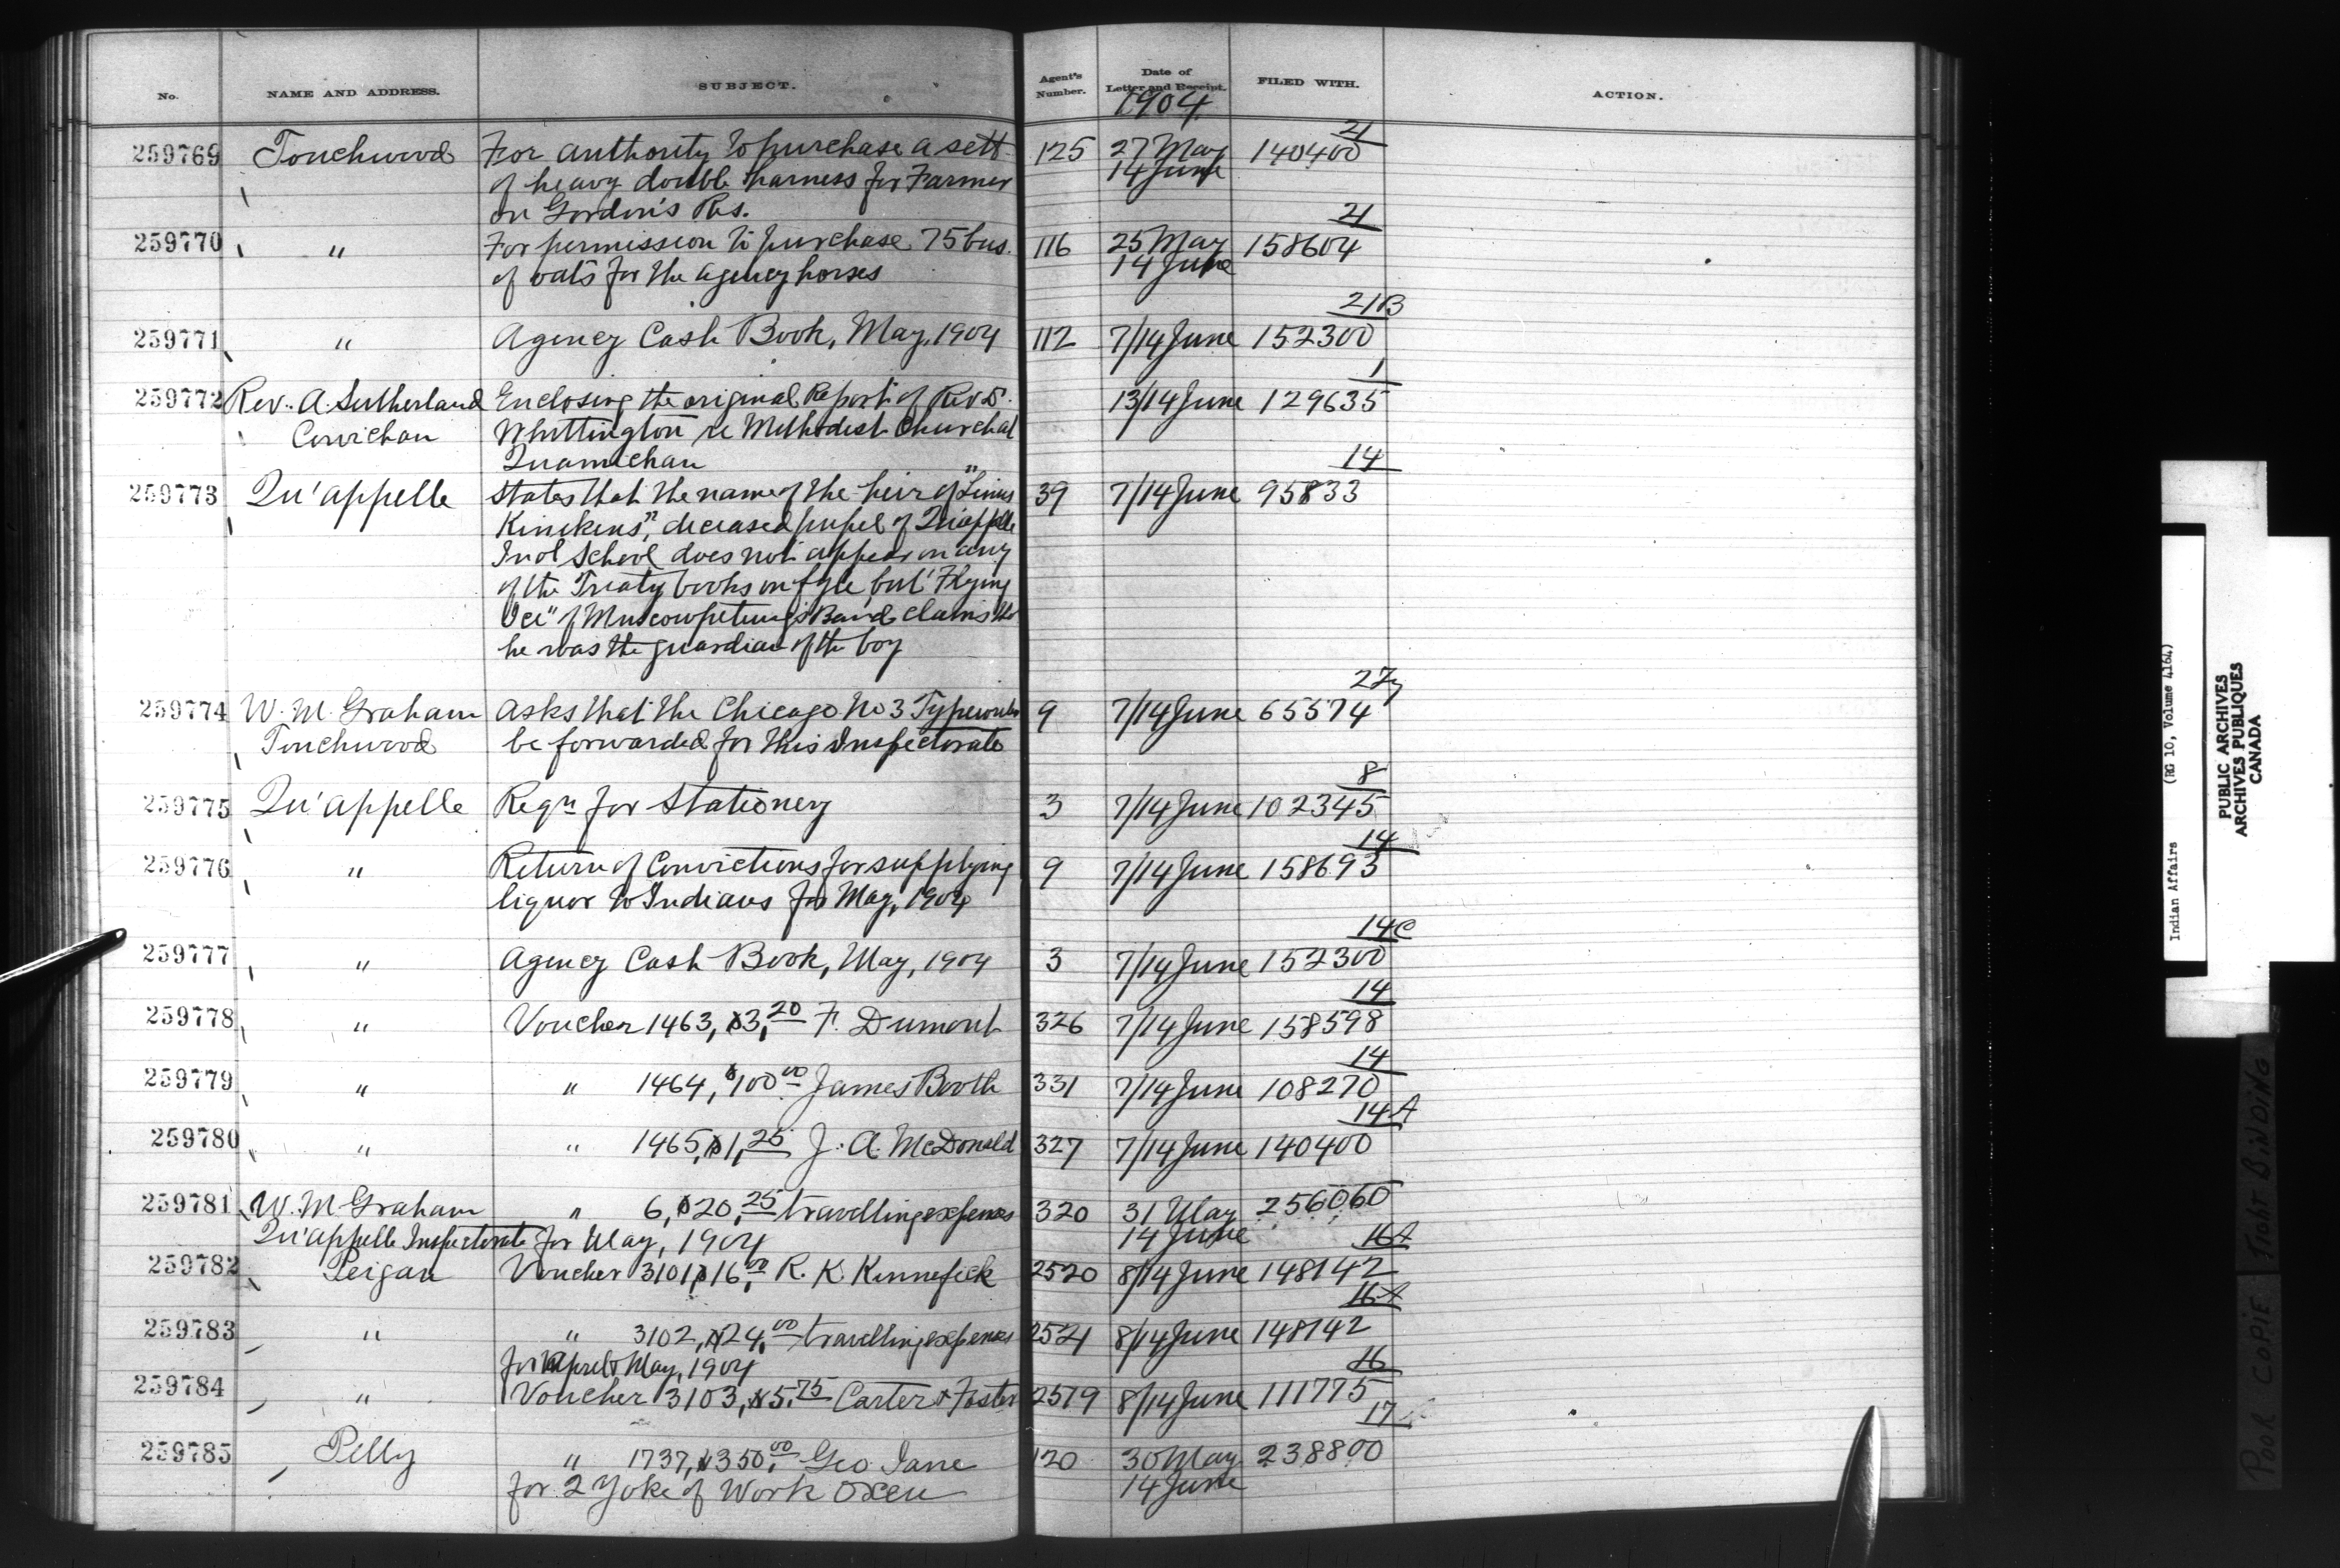 No. NAME AND ADDRESS. SUBJECT. Agent's Number. Date of Letter and Receipt. FILED WITH. ACTION.
1904
21
259769 Touchwood For authority to purchase a sett 125 27 May 140400
of heavy double harness for Farmer 14 June
on Gordon's Res.
21
259770 " For permission to purchase 75 bus. 116 25 May 158604
of oats for the agency horses 14 June
21B
259771 " Agency Cash Book, May, 1904 112 7/14 June 152300
1
259772 Rev. A. Sutherland Enclosing the original Report of Rev. 13/14 June 129635
Cowichan Whittington re Methodist Church at
Quamichan
14
259773 Qu'appelle States that the name of the heir of "Linus 39 7/14 June 95833
Kinikens", deceased pupil of Qu'appelle
Indl School does not appear on any
of the Treaty books on fyle, but "Flying
Ice" of Muscowpetung's Band claims tht
he was the guardian of the boy
27
259774 W. M. Graham Asks that the Chicago No 3 Typewriter 9 7/14 June 65574
Touchwood be forwarded for this Inspectorate
8
259775 Qu'appelle Reqn for Stationery 3 7/14 June 102345
14
259776 " Return of Convictions for supplying 9 7/14 June 158693
liquor to Indians for May, 1904
14C
259777 " Agency Cash Book, May, 1904 3 7/14 June 152300
14
259778 " Voucher 1463, $3.20 F. Dumont 326 7/14 June 158598
14
259779 " " 1464, $100.00 James Booth 331 7/14 June 108270
14A
259780 " " 1465, $1.25 J. A. McDonald 327 7/14 June 140400
259781 W. M. Graham " 6, $20.25 travelling expenses 320 31 May 256060
Qu'appelle Inspectorate for May, 1904 14 June
16A
259782 Peigan Voucher 3101 $16.00 R. K. Kinnefick 2520 8/14 June 148142
16A
259783 " " 3102, $24.00 travelling expenses 2521 8/14 June 148142
for April & May, 1904
16
259784 " Voucher 3103, $5.75 Carter & Foster 2519 8/14 June 111775
17
259785 Pelly " 1737, $350.00 Geo Jane 120 30 May 238800
for 2 Yoke of Work Oxen 14 June
Indian Affairs (RG 10, Volume 4164)
PUBLIC ARCHIVES
ARCHIVES PUBLIQUES
CANADA
POOR COPIE TIGHT BINDING